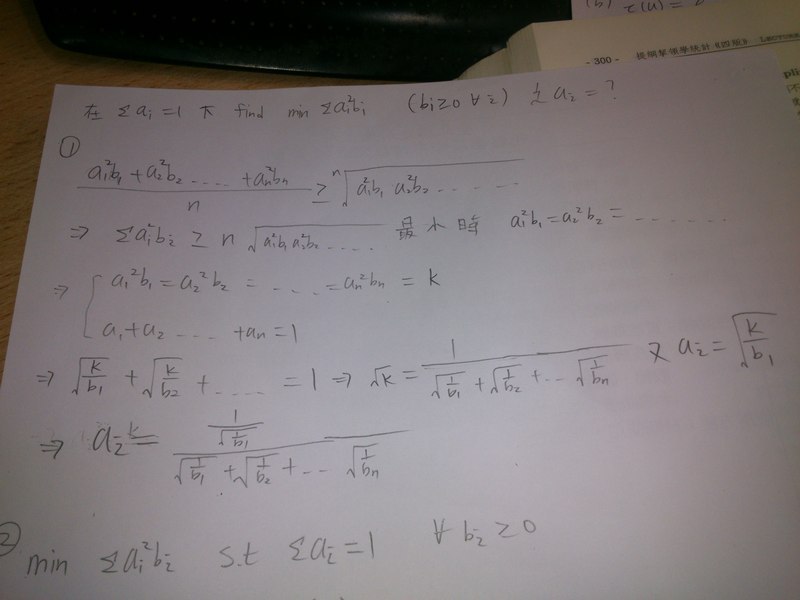 (b) τ(u) =
- 300 - 提綱挈領學統計《四版》 LECTURE
在 Σai =1 下 find min Σai²bi (bi≥0 ∀i) 之 ai = ?
①
(a1²b1 + a2²b2 ..... + an²bn) / n ≥ ⁿ√(a1²b1 a2²b2 ......)
⇒ Σai²bi ≥ n √(a1²b1 a2²b2 ....) 最小時 a1²b1 = a2²b2 = .......
⇒ { a1²b1 = a2²b2 = .... = an²bn = k
a1 + a2 .... + an = 1
⇒ √(k/b1) + √(k/b2) + ..... = 1 ⇒ √k = 1 / (√(1/b1) + √(1/b2) + ... √(1/bn)) 又 ai = √(k/b1)
⇒ ai = (1/√b1) / (√(1/b1) + √(1/b2) + ... √(1/bn))
②
min Σai²bi s.t Σai = 1 ∀ bi ≥ 0